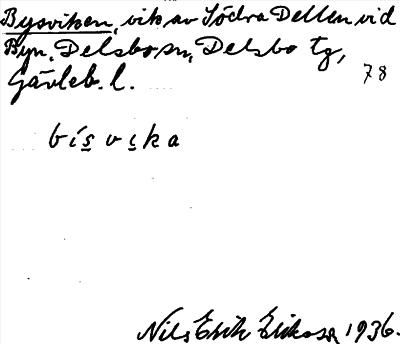 Bysviken, vik av Södra Dellen vid
Byn, Delsbo sn, Delsbo tg,
Gävleb. l.
78
bísvika
Nils Erik Eriksson 1936.